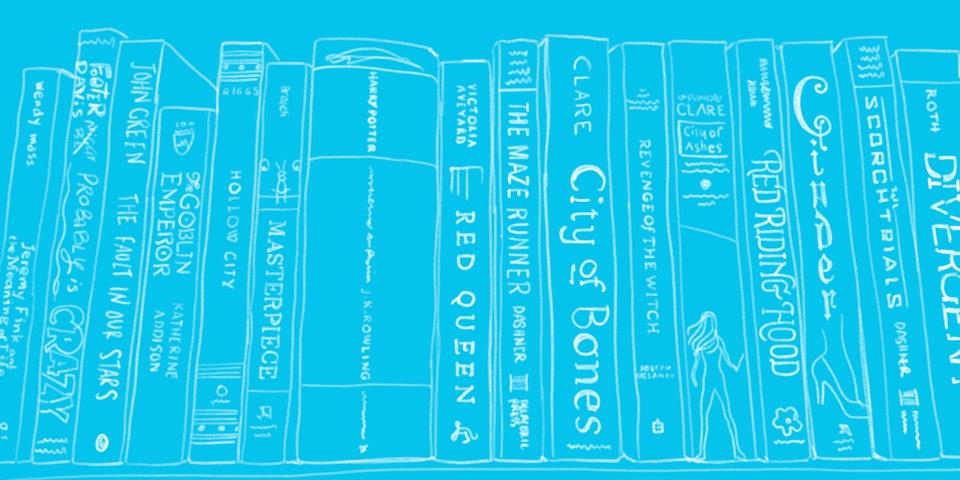 wendy mass
Jeremy Fink and
the Meaning of Life
FOSTER
DAVIS
PROBABLY
is
CRAZY
JOHN GREEN
THE FAULT IN OUR STARS
The GOBLIN
EMPEROR
KATHERINE
ADDISON
RIGGS
HOLLOW CITY
Broach
MASTERPIECE
HARRY POTTER
J.K. ROWLING
VICTORIA
AVEYARD
RED QUEEN
THE MAZE RUNNER
DASHNER
DELACORTE
PRESS
CLARE
City of Bones
REVENGE OF THE WITCH
JOSEPH
DELANEY
CASSANDRA
CLARE
City of
Ashes
RED RIDING HOOD
Cinder
THE
SCORCH TRIALS
DASHNER
ROTH
DIVERGENT